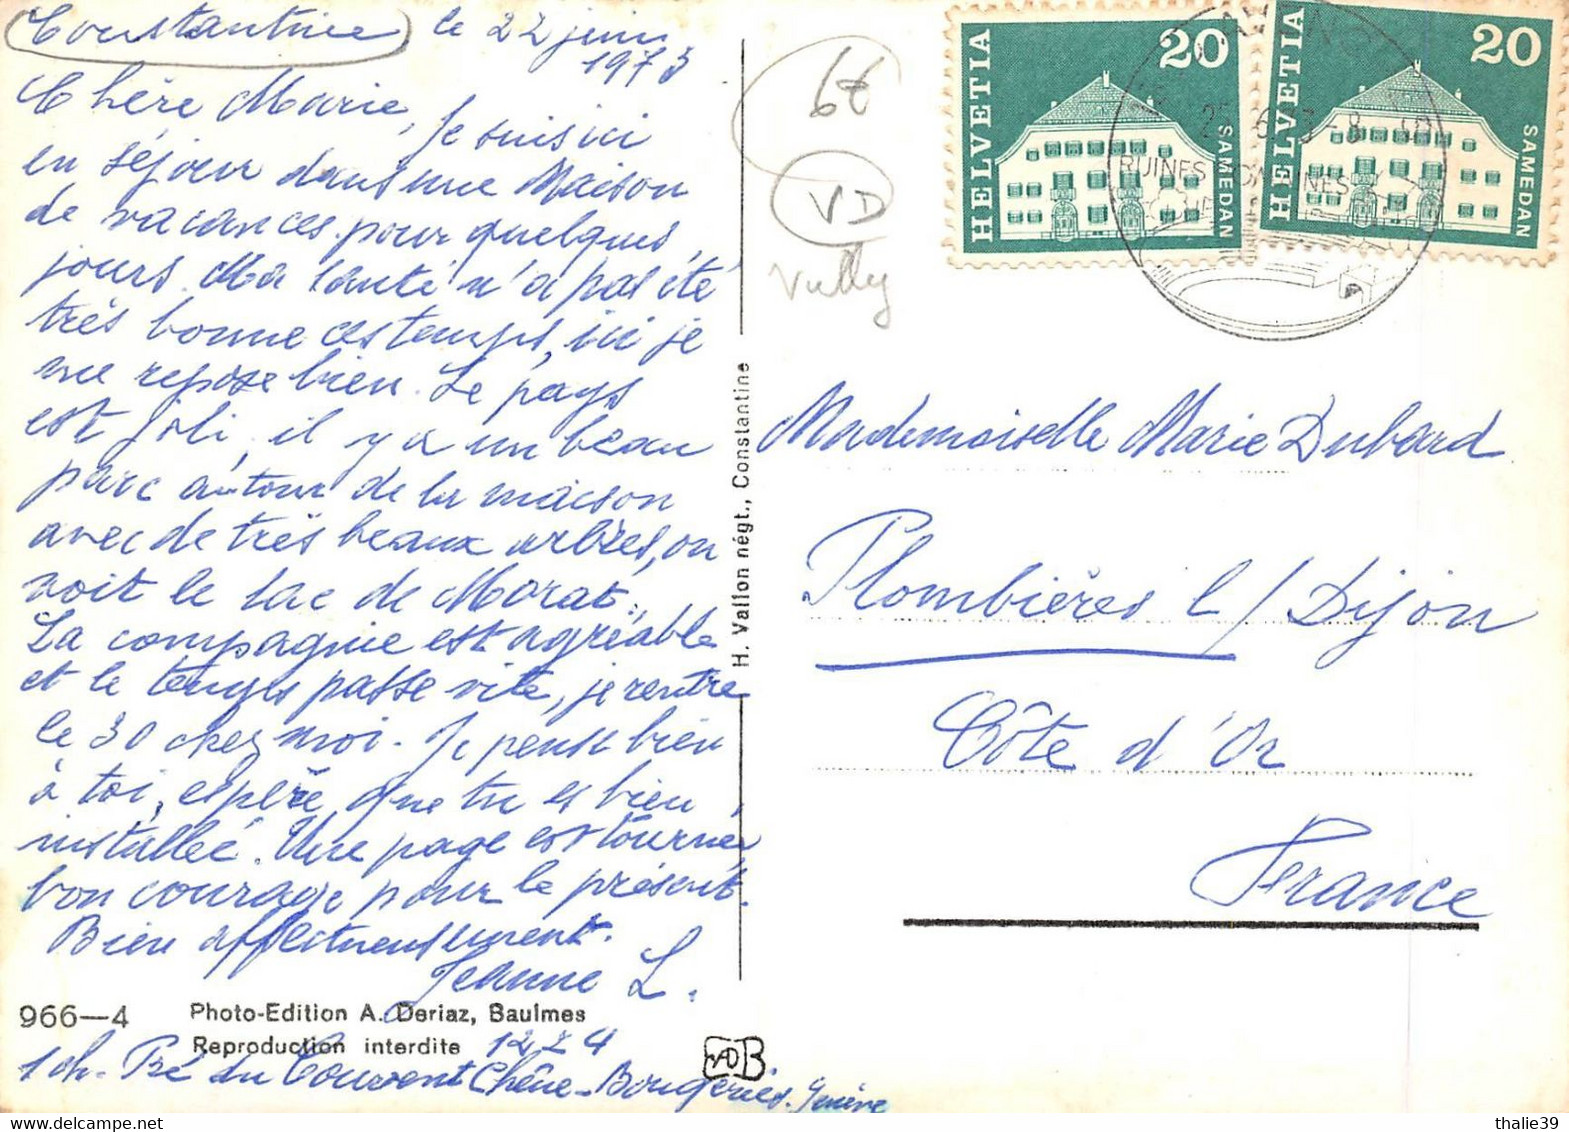 Constantine le 22 juin
1973
Chère Marie, Je suis ici
en séjour dans une Maison
de vacances pour quelques
jours. Ma santé n'a pas été
très bonne ces temps, ici je
me repose bien. Le pays
est joli, il y a un beau
parc autour de la maison
avec de très beaux arbres, on
voit le lac de Morat.
La compagnie est agréable
et le temps passe vite, je rentre
le 30 chez moi. Je pense bien
à toi, espère que tu es bien
installée. Une page est tournée,
bon courage pour le présent.
Bien affectueusement.
Jeanne L.
966—4
Photo-Edition A. Deriaz, Baulmes
Reproduction interdite
1224
1 ch. Pré du Couvent Chêne-Bougeries. Genève
VDB
H. Vallon négt., Constantine
6€
VD
Vully
HELVETIA
20
SAMEDAN
HELVETIA
20
SAMEDAN
RUINES ROMAINES
Mademoiselle Marie Dubard
Plombières l/Dijon
Côte d'Or
France
thalie39